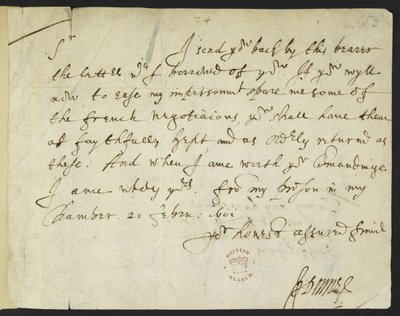 24
Sr
I send yow back by this bearer
the letter wch I borrowed of yow. If yow wyll
now to ease my imprisonmt spare me some of
the french negotiations, yow shall have them
as faythfully kept and as orderly returned as
these: And when I ame worth yor comandinge
I ame wholy yors from my Prison in my
Chamber. 20 februa: 1601
yor honest assured frind
BRITISH
MUSEUM